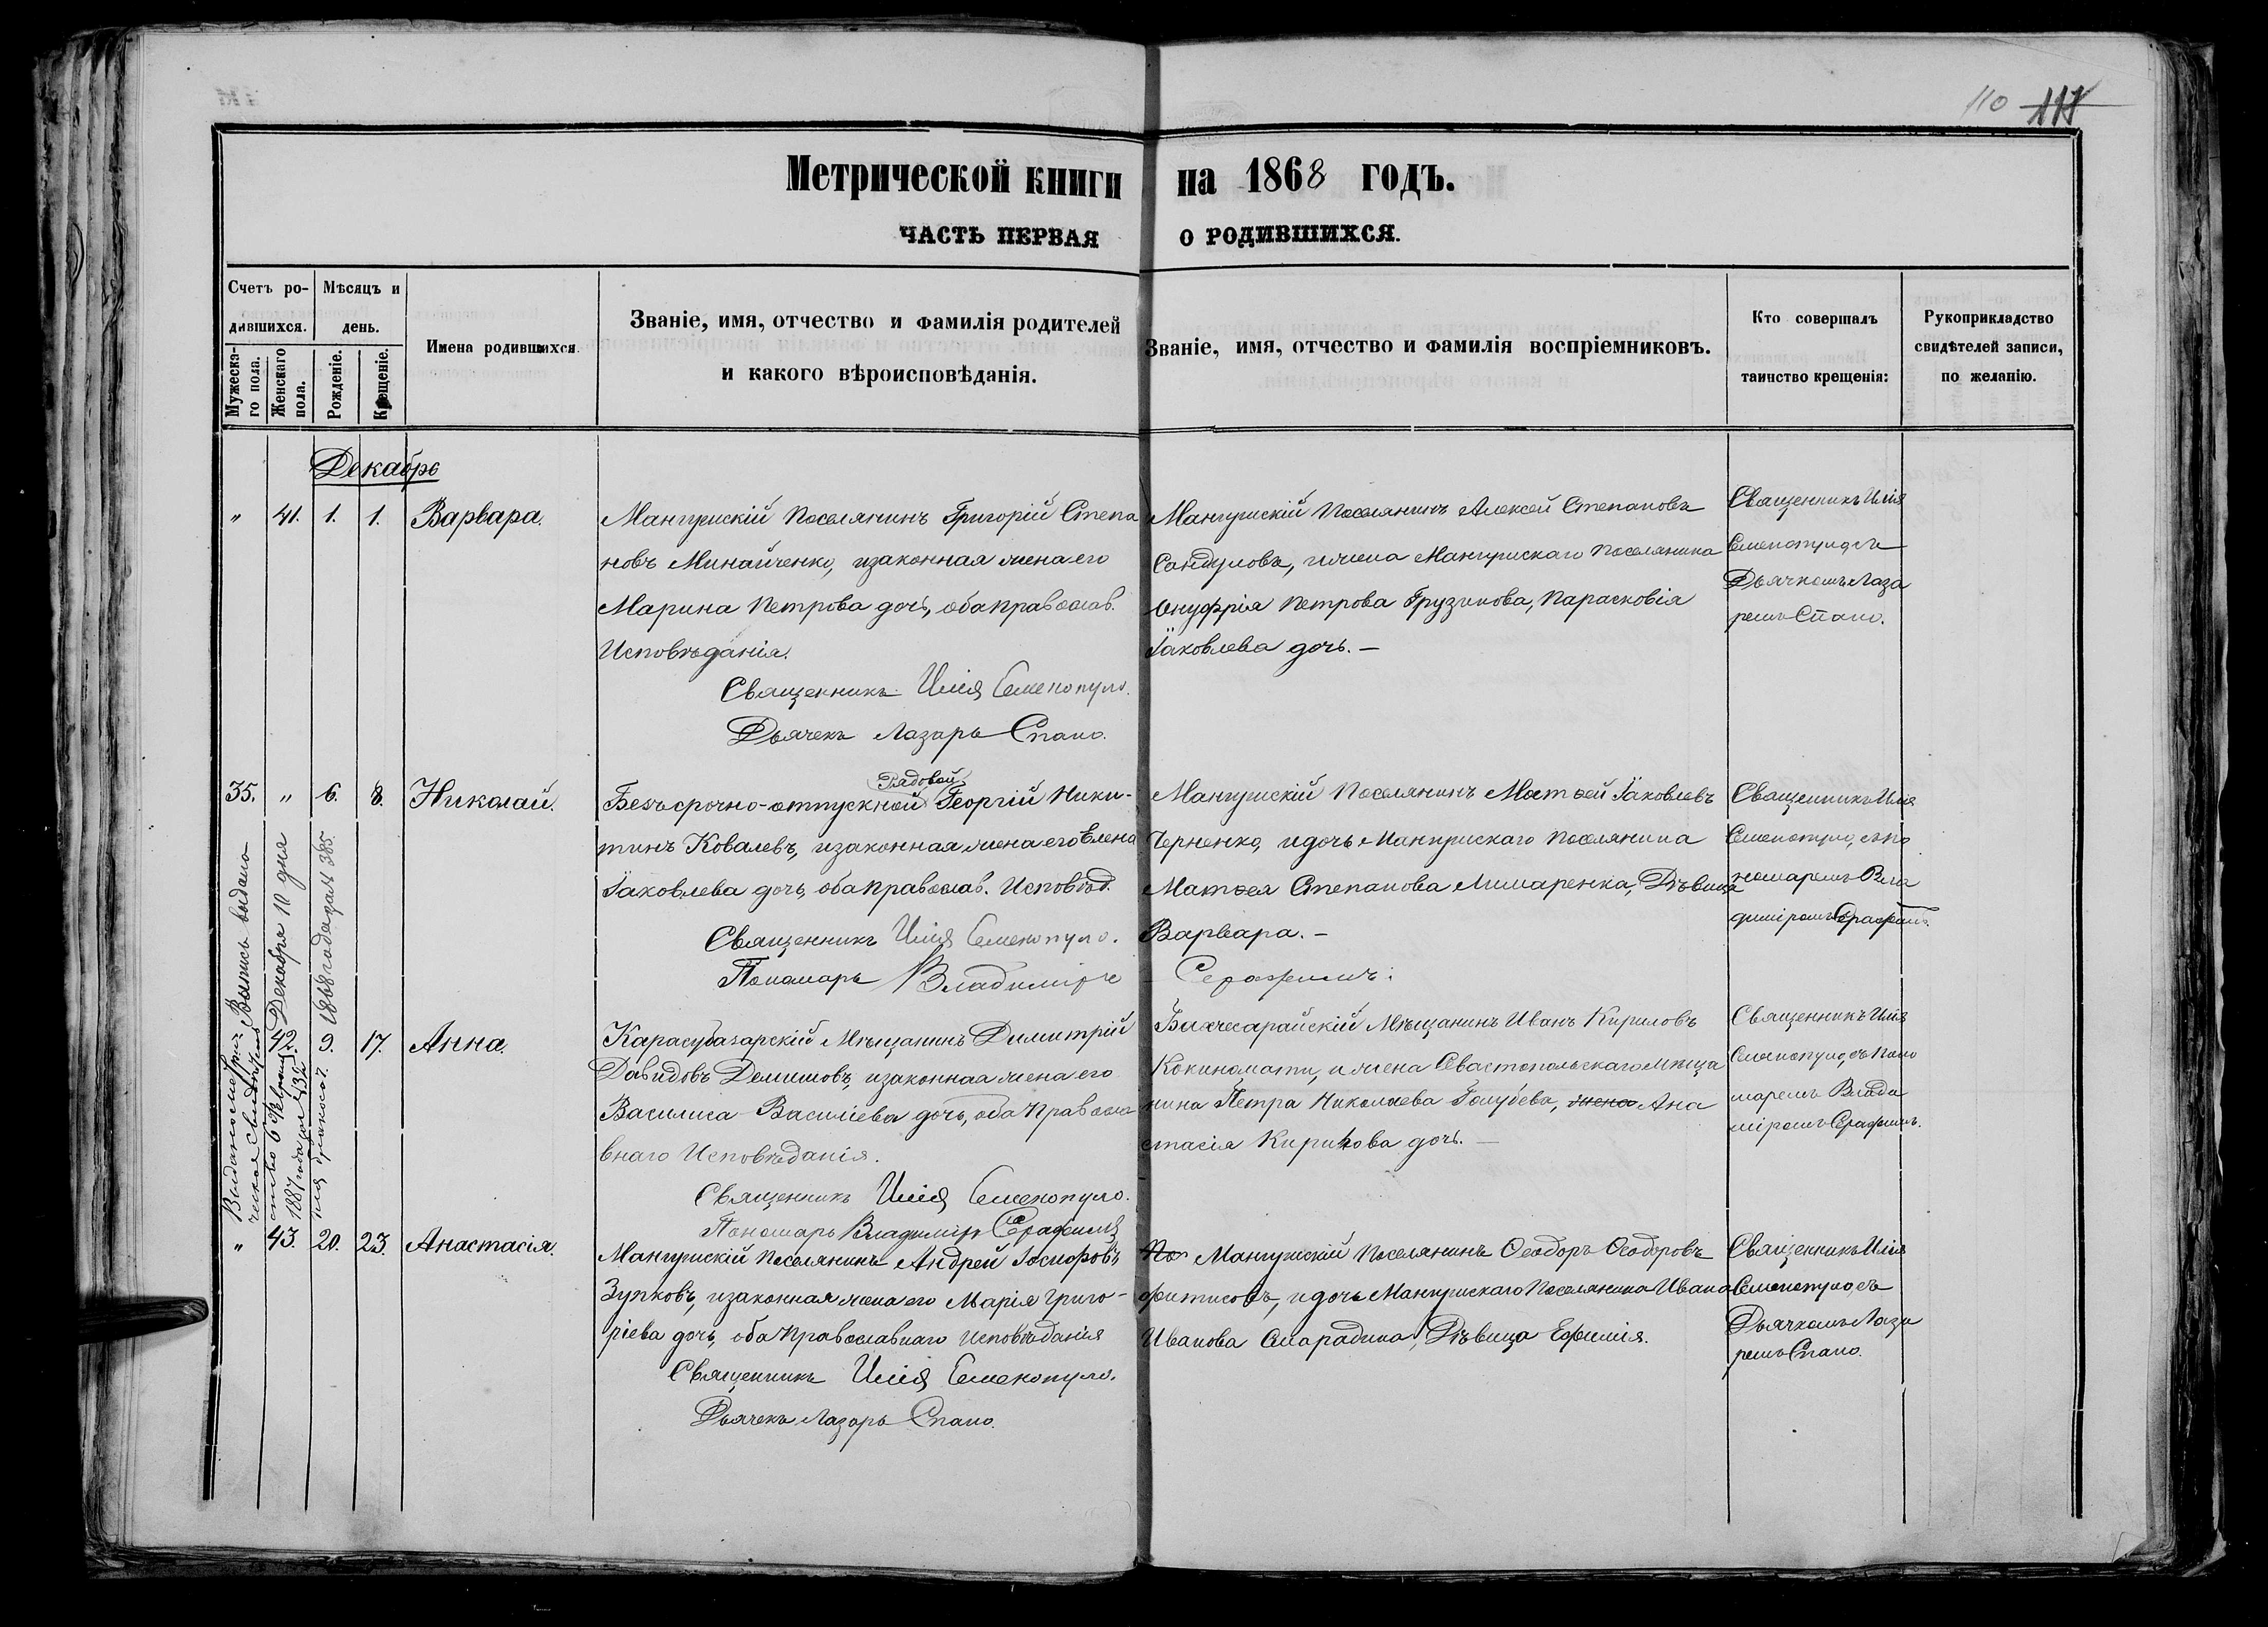 110 111
Метрической книги на 1868 годъ.
ЧАСТЬ ПЕРВАЯ О РОДИВШИХСЯ.
Счетъ ро-
дившихся.
Мужеска-
го пола.
Женскаго
пола.
Мѣсяцъ и
день.
Рожденіе.
Крещеніе.
Имена родившихся
Званіе, имя, отчество и фамилія родителей
и какого вѣроисповѣданія.
Званіе, имя, отчество и фамилія воспріемниковъ.
Кто совершалъ
таинство крещенія:
Рукоприкладство
свидѣтелей записи,
по желанію.
Декабрь
" 41. 1. 1. Варвара.
Мангушскій Поселянинъ Григорій Степа
новъ Минайченко, изаконная жена его
Марина Петрова дочь, оба православ.
Исповѣданія.
Священникъ Илія Семенопуло.
Дьячекъ Лазарь Спано.
Мангушскій Поселянинъ Алексей Степановъ
Сандуловъ, ижена Мангушскаго Поселянина
Онуфрія Петрова Грузинова, Парасковія
Іаковлева дочь. —
Священникъ Илія
Семенопуло съ
Дьячкомъ Лаза
ремъ Спано.
35. " 6. 8. Николай.
Рядовой
Безъсрочно-отпускной Георгій Ники-
тинъ Ковалевъ, изаконная жена его Елена
Іаковлева дочь, оба православ. Исповѣд.
Священникъ Илія Семенопуло.
Пономарь Владиміръ Серафимъ.
Мангушскій Поселянинъ Матѳей Іаковлевъ
Черненко, идочь Мангушскаго Поселянина
Матѳея Степанова Лимаренка, Дѣвица
Варвара. —
Священникъ Илія
Семенопуло, съ по
номаремъ Вла
диміромъ Серафим.
Выпись выдана
Декабря 10 дня
1868 года за № 385
42. 9. 17. Анна.
Карасубазарскій Мѣщанинъ Димитрій
Давидовъ Демишовъ, изаконная жена его
Василиса Василіева дочь, оба Правосла
внаго Исповѣданія.
Священникъ Илія Семенопуло.
Пономарь Владиміръ Серафимъ
Бахчесарайскій Мѣщанинъ Иванъ Кириловъ
Кокиномати, и жена Севастопольскаго Мѣща
нина Петра Николаева Голубева, жена Ана
стасія Кирилова дочь. —
Священникъ Илія
Семенопуло, съ Поно
маремъ Влади
міромъ Серафим.
Выдано метри
ческое свидѣтель
ство 6 Февраля
1887 года
" 43. 20. 23. Анастасія.
Мангушскій Поселянинъ Андрей Іосифовъ
Зупковъ, изаконная жена его Марія Григо-
ріева дочь, оба Православнаго Исповѣданія
Священникъ Илія Семенопуло.
Дьячекъ Лазарь Спано.
По Мангушскій Поселянинъ Ѳеодоръ Ѳеодоровъ
Фитисовъ, идочь Мангушскаго Поселянина Ивана
Иванова Смарадина, Дѣвица Ефимія.
Священникъ Илія
Семенопуло, съ
Дьячкомъ Лаза
ремъ Спано.